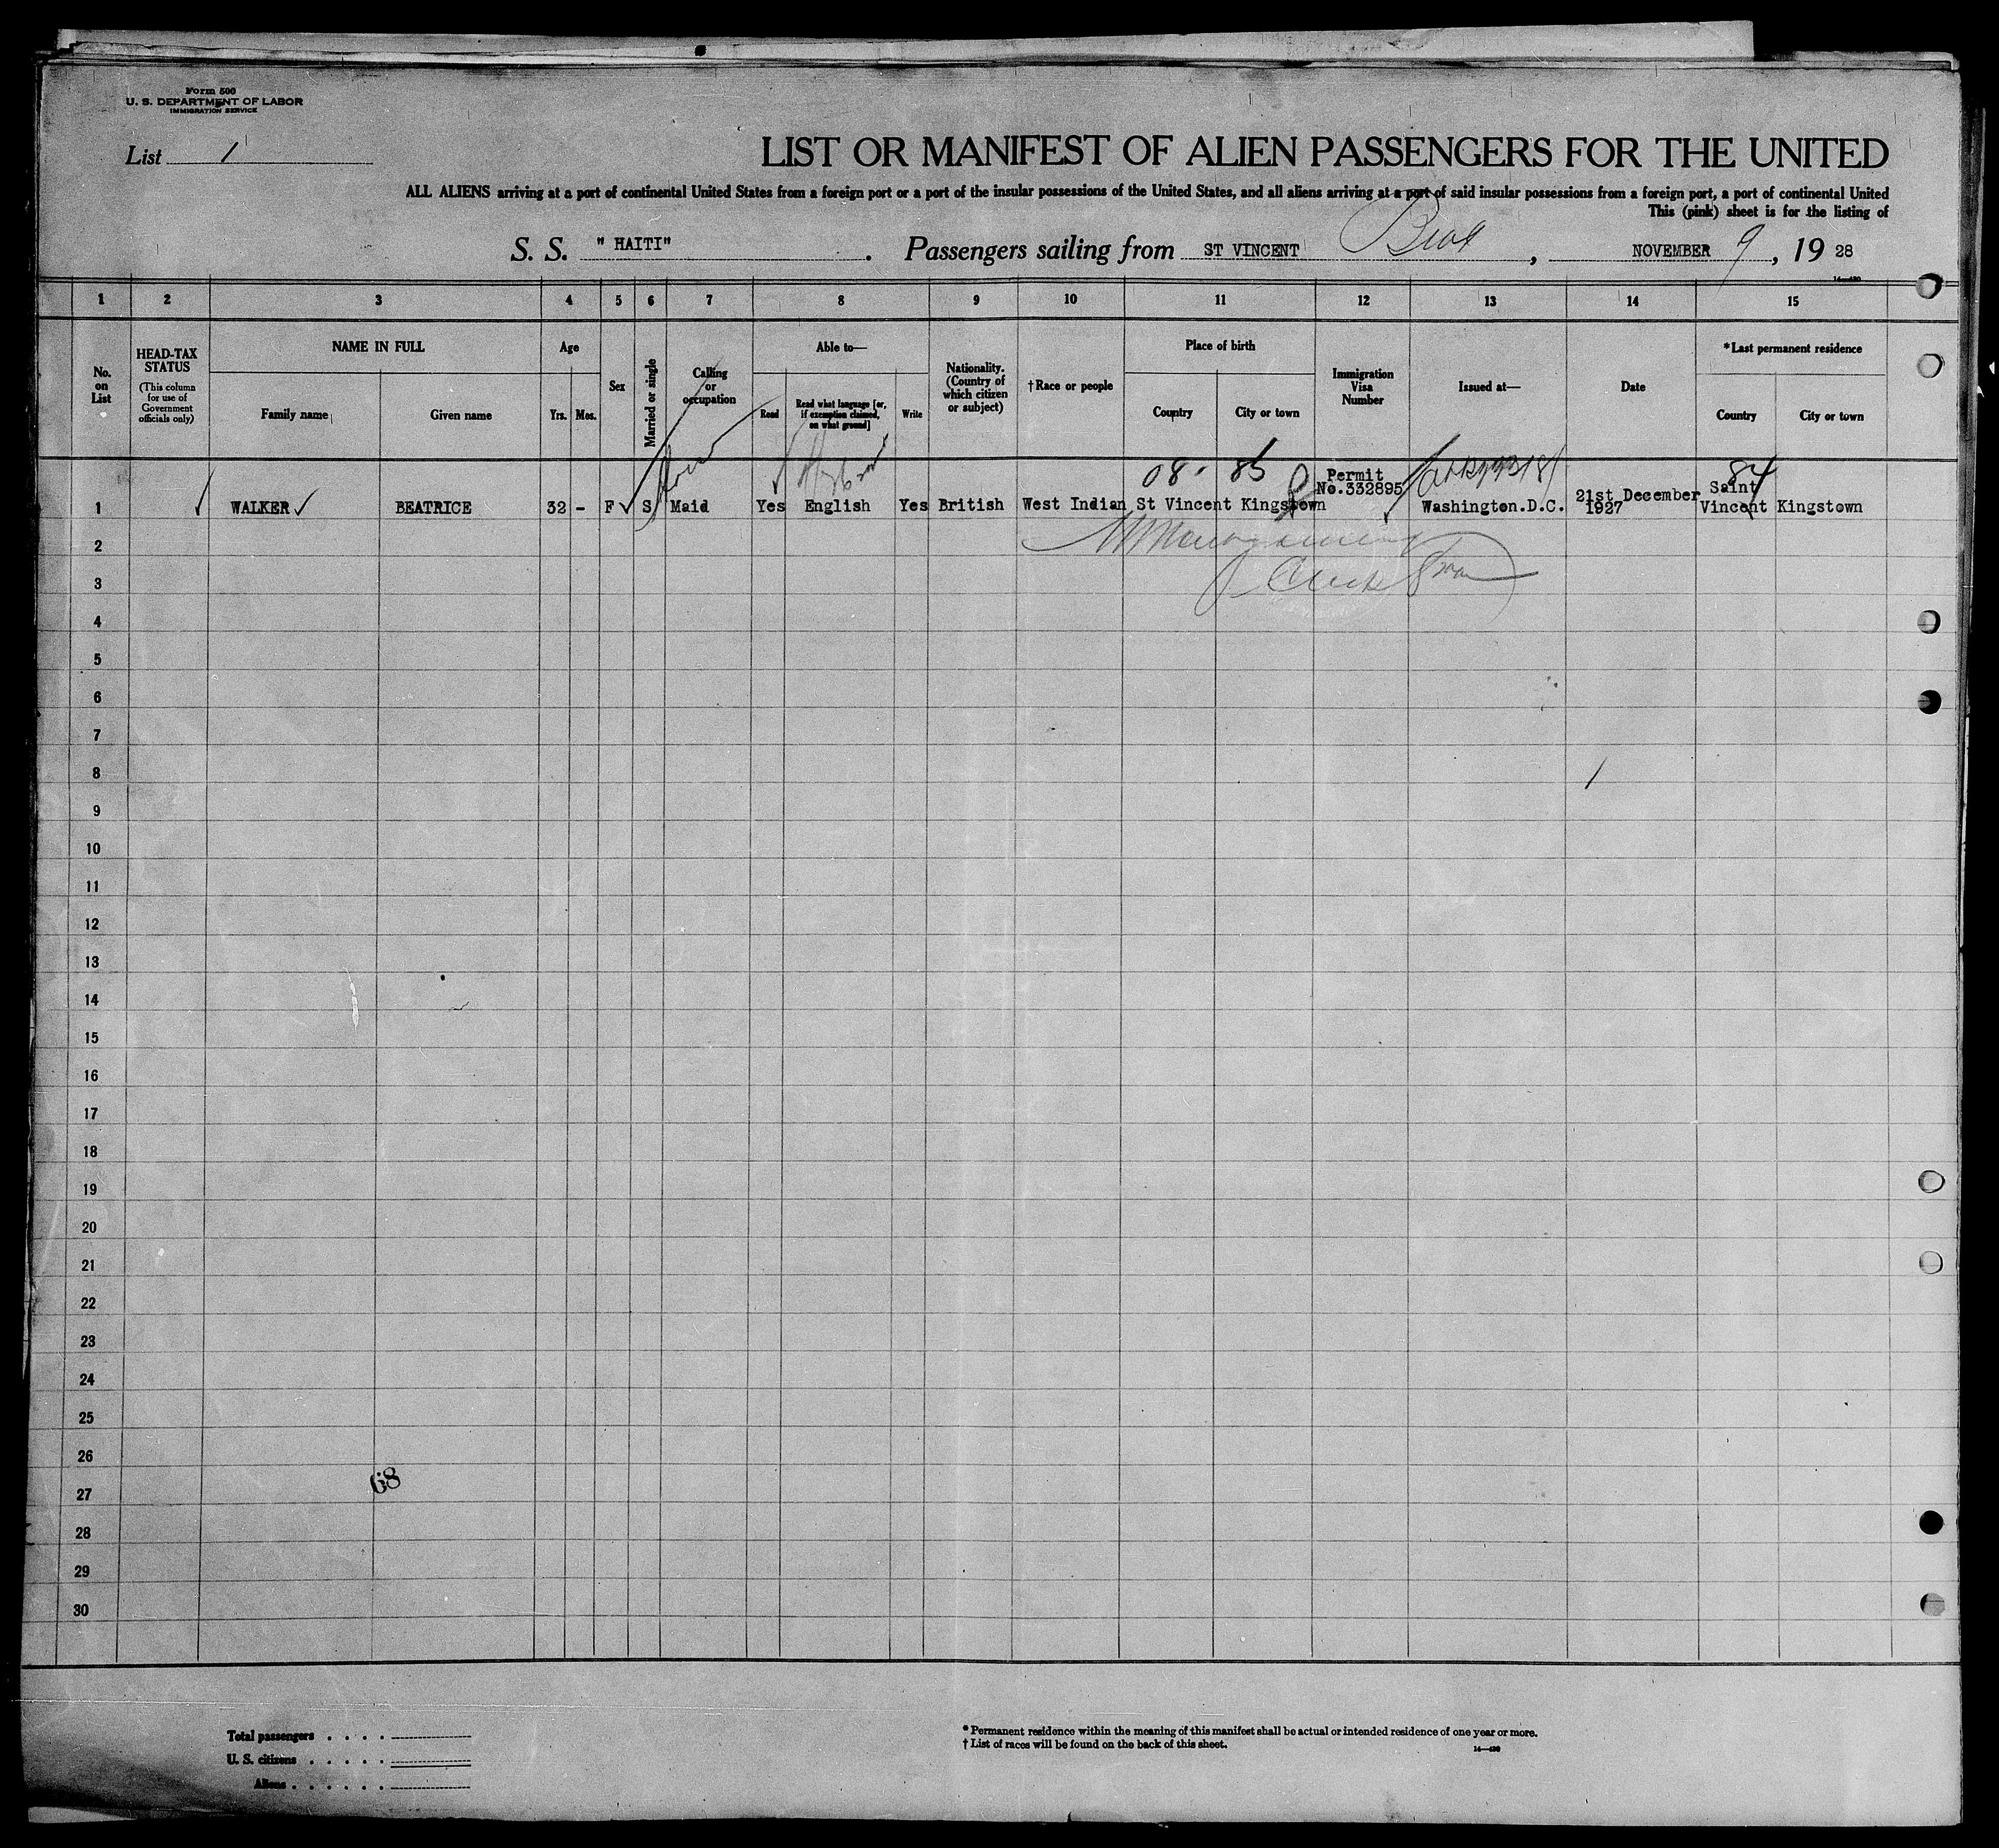 Form 500
U. S. DEPARTMENT OF LABOR
IMMIGRATION SERVICE
List 1
LIST OR MANIFEST OF ALIEN PASSENGERS FOR THE UNITED
ALL ALIENS arriving at a port of continental United States from a foreign port or a port of the insular possessions of the United States, and all aliens arriving at a port of said insular possessions from a foreign port, a port of continental United
This (pink) sheet is for the listing of
S. S. " HAITI" . Passengers sailing from ST VINCENT , NOVEMBER 9 , 19 28
14—430
1 2 3 4 5 6 7 8 9 10 11 12 13 14 15
No. on List
HEAD-TAX STATUS (This column for use of Government officials only)
NAME IN FULL
Family name Given name
Age
Yrs. Mos.
Sex
Married or single
Calling or occupation
Able to—
Read Read what language [or, if exemption claimed, on what ground] Write
Nationality. (Country of which citizen or subject)
†Race or people
Place of birth
Country City or town
Immigration Visa Number
Issued at—
Date
*Last permanent residence
Country City or town
08. 85 84
1 WALKER BEATRICE 32 - F S Maid Yes English Yes British West Indian St Vincent Kingstown Permit No.332895 Washington.D.C. 21st December 1927 Saint Vincent Kingstown
2
3
4
5
6
7
8
9
10
11
12
13
14
15
16
17
18
19
20
21
22
23
24
25
26
68
27
28
29
30
Total passengers . . . .
U. S. citizens . . . . .
Aliens . . . . . .
* Permanent residence within the meaning of this manifest shall be actual or intended residence of one year or more.
† List of races will be found on the back of this sheet.
14—430